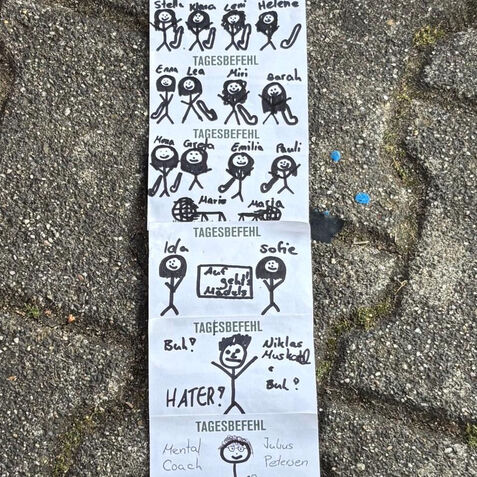 Stella Klara Leni Helene
TAGESBEFEHL
Emma Lea Miri Sarah
TAGESBEFEHL
Greta Emilia Pauli
Marie Marta
TAGESBEFEHL
Ida Sofie
Auf
geht's
Mädels
TAGESBEFEHL
Buh? Niklas
HATER? Buh?
TAGESBEFEHL
Mental Julius
Coach Petersen